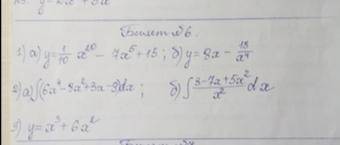 Билет №6.
1) а) y = 1/10 x²⁰ - 7x⁵ + 15 ; б) y = 8x - 18/x⁴
2) а) ∫(6x⁴ - 8x² + 3x - 3)dx ; б) ∫ (3 - 7x + 5x²)/x² dx
3) y = x³ + 6x²